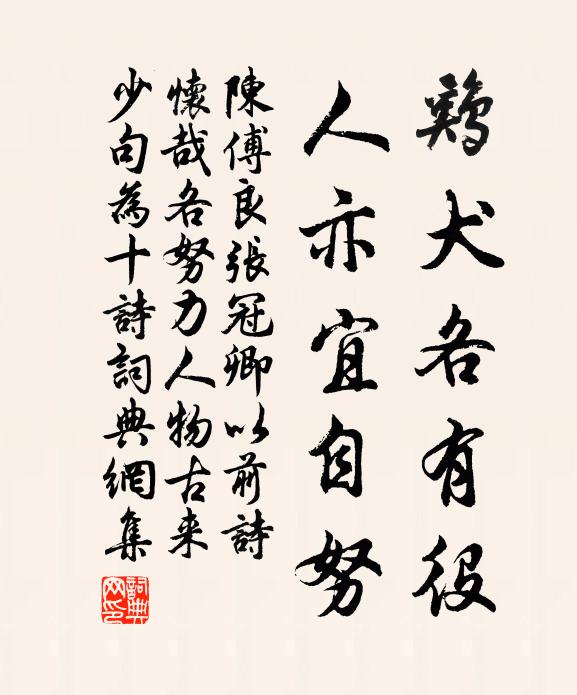 鷄犬各有役
人亦宜自努
陳傅良張冠卿以前詩
懷哉各努力人物古来
少句為十詩詞典網集
詞典網印